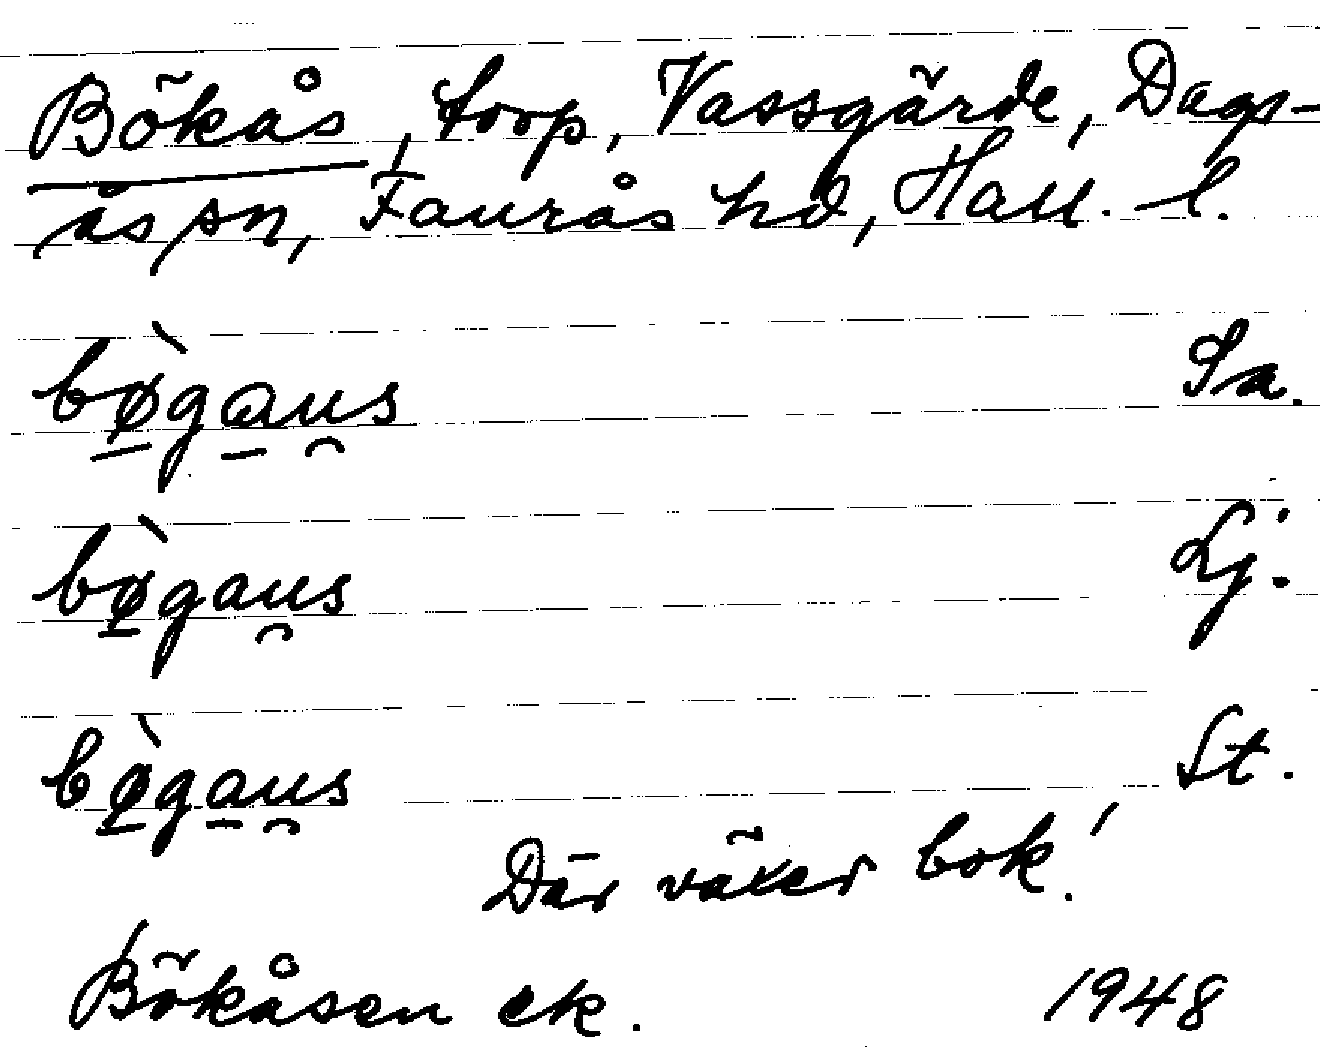 Bökås, torp, Vassgärde, Dags-
ås sn, Faurås hd, Hall. l.
bø̀gaus Sa.
bø̀gaus Lj.
bø̀gaus St.
Där växer bok!
Bökåsen ek. 1948